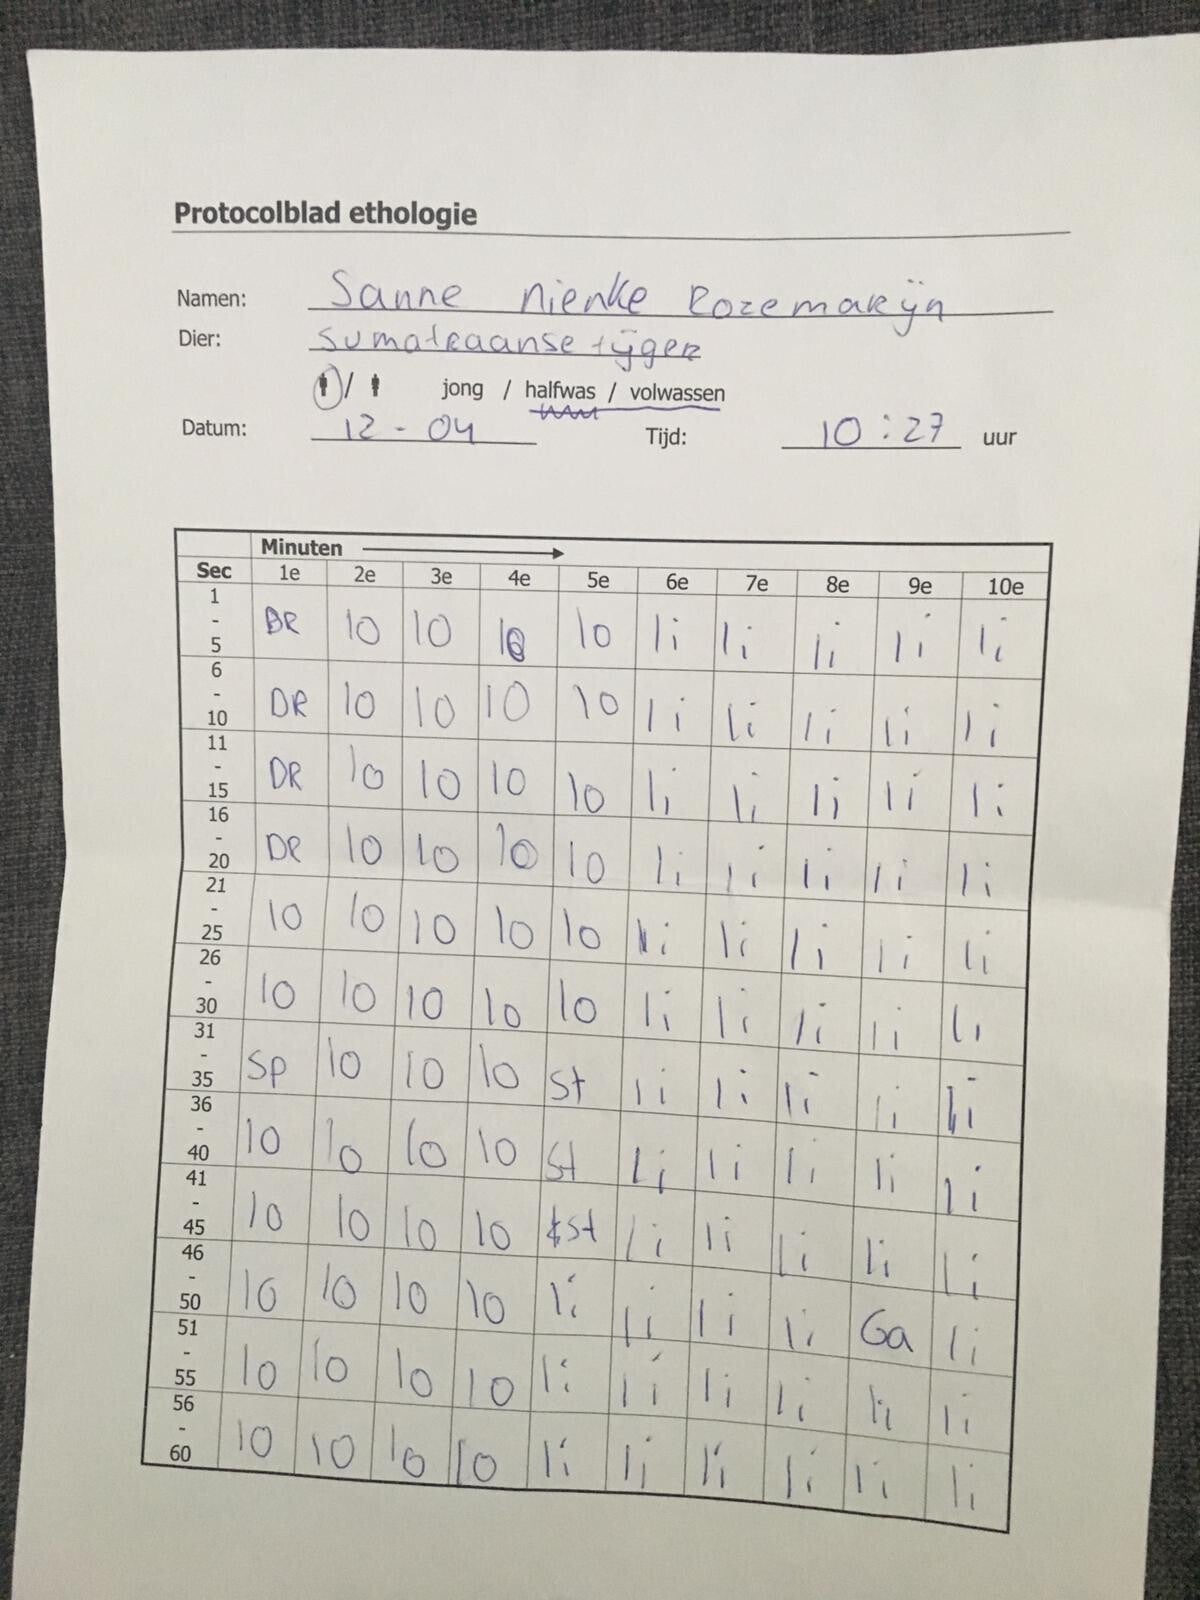 Protocolblad ethologie
Namen: Sanne nienke Rozemarijn
Dier: sumatraanse tijger
/ jong / halfwas / volwassen
Datum: 12-04 Tijd: 10:27 uur
Minuten
Sec 1e 2e 3e 4e 5e 6e 7e 8e 9e 10e
1 - 5 BR lo lo lo lo li li li li li
6 - 10 DR lo lo lo lo li li li li li
11 - 15 DR lo lo lo lo li li li li li
16 - 20 DR lo lo lo lo li li li li li
21 - 25 lo lo lo lo lo li li li li li
26 - 30 lo lo lo lo lo li li li li li
31 - 35 Sp lo lo lo St li li li li li
36 - 40 lo lo lo lo St li li li li li
41 - 45 lo lo lo lo St li li li li li
46 - 50 lo lo lo lo li li li li Ga li
51 - 55 lo lo lo lo li li li li li li
56 - 60 lo lo lo lo li li li li li li